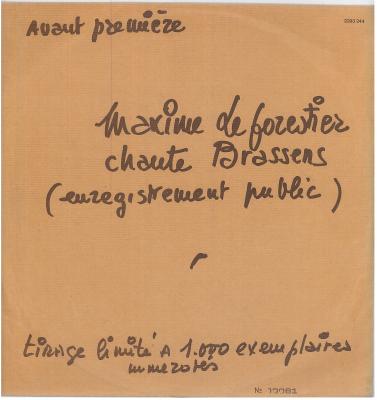 Avant première
2393 244
Maxime le forestier
chante Brassens
(enregistrement public)
tirage limité A 1.000 exemplaires
numerotés
№